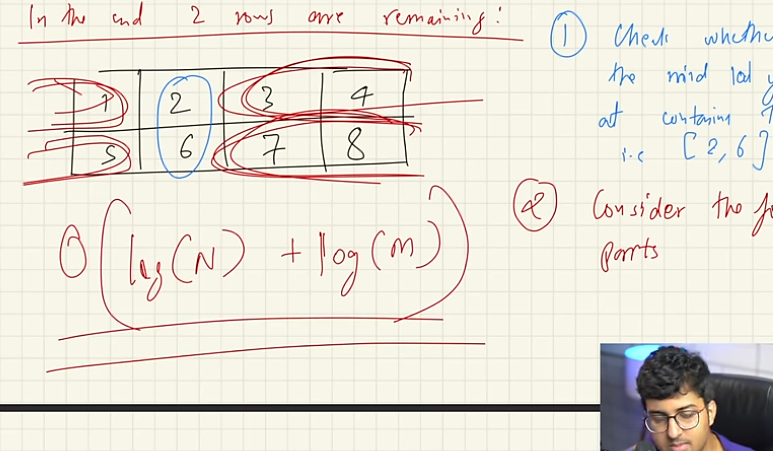 In the end 2 rows are remaining:
1 2 3 4
5 6 7 8
O(log(N) + log(M))
① Check whethe
the mid
at containing
i.e [2, 6]
② Consider the f
parts